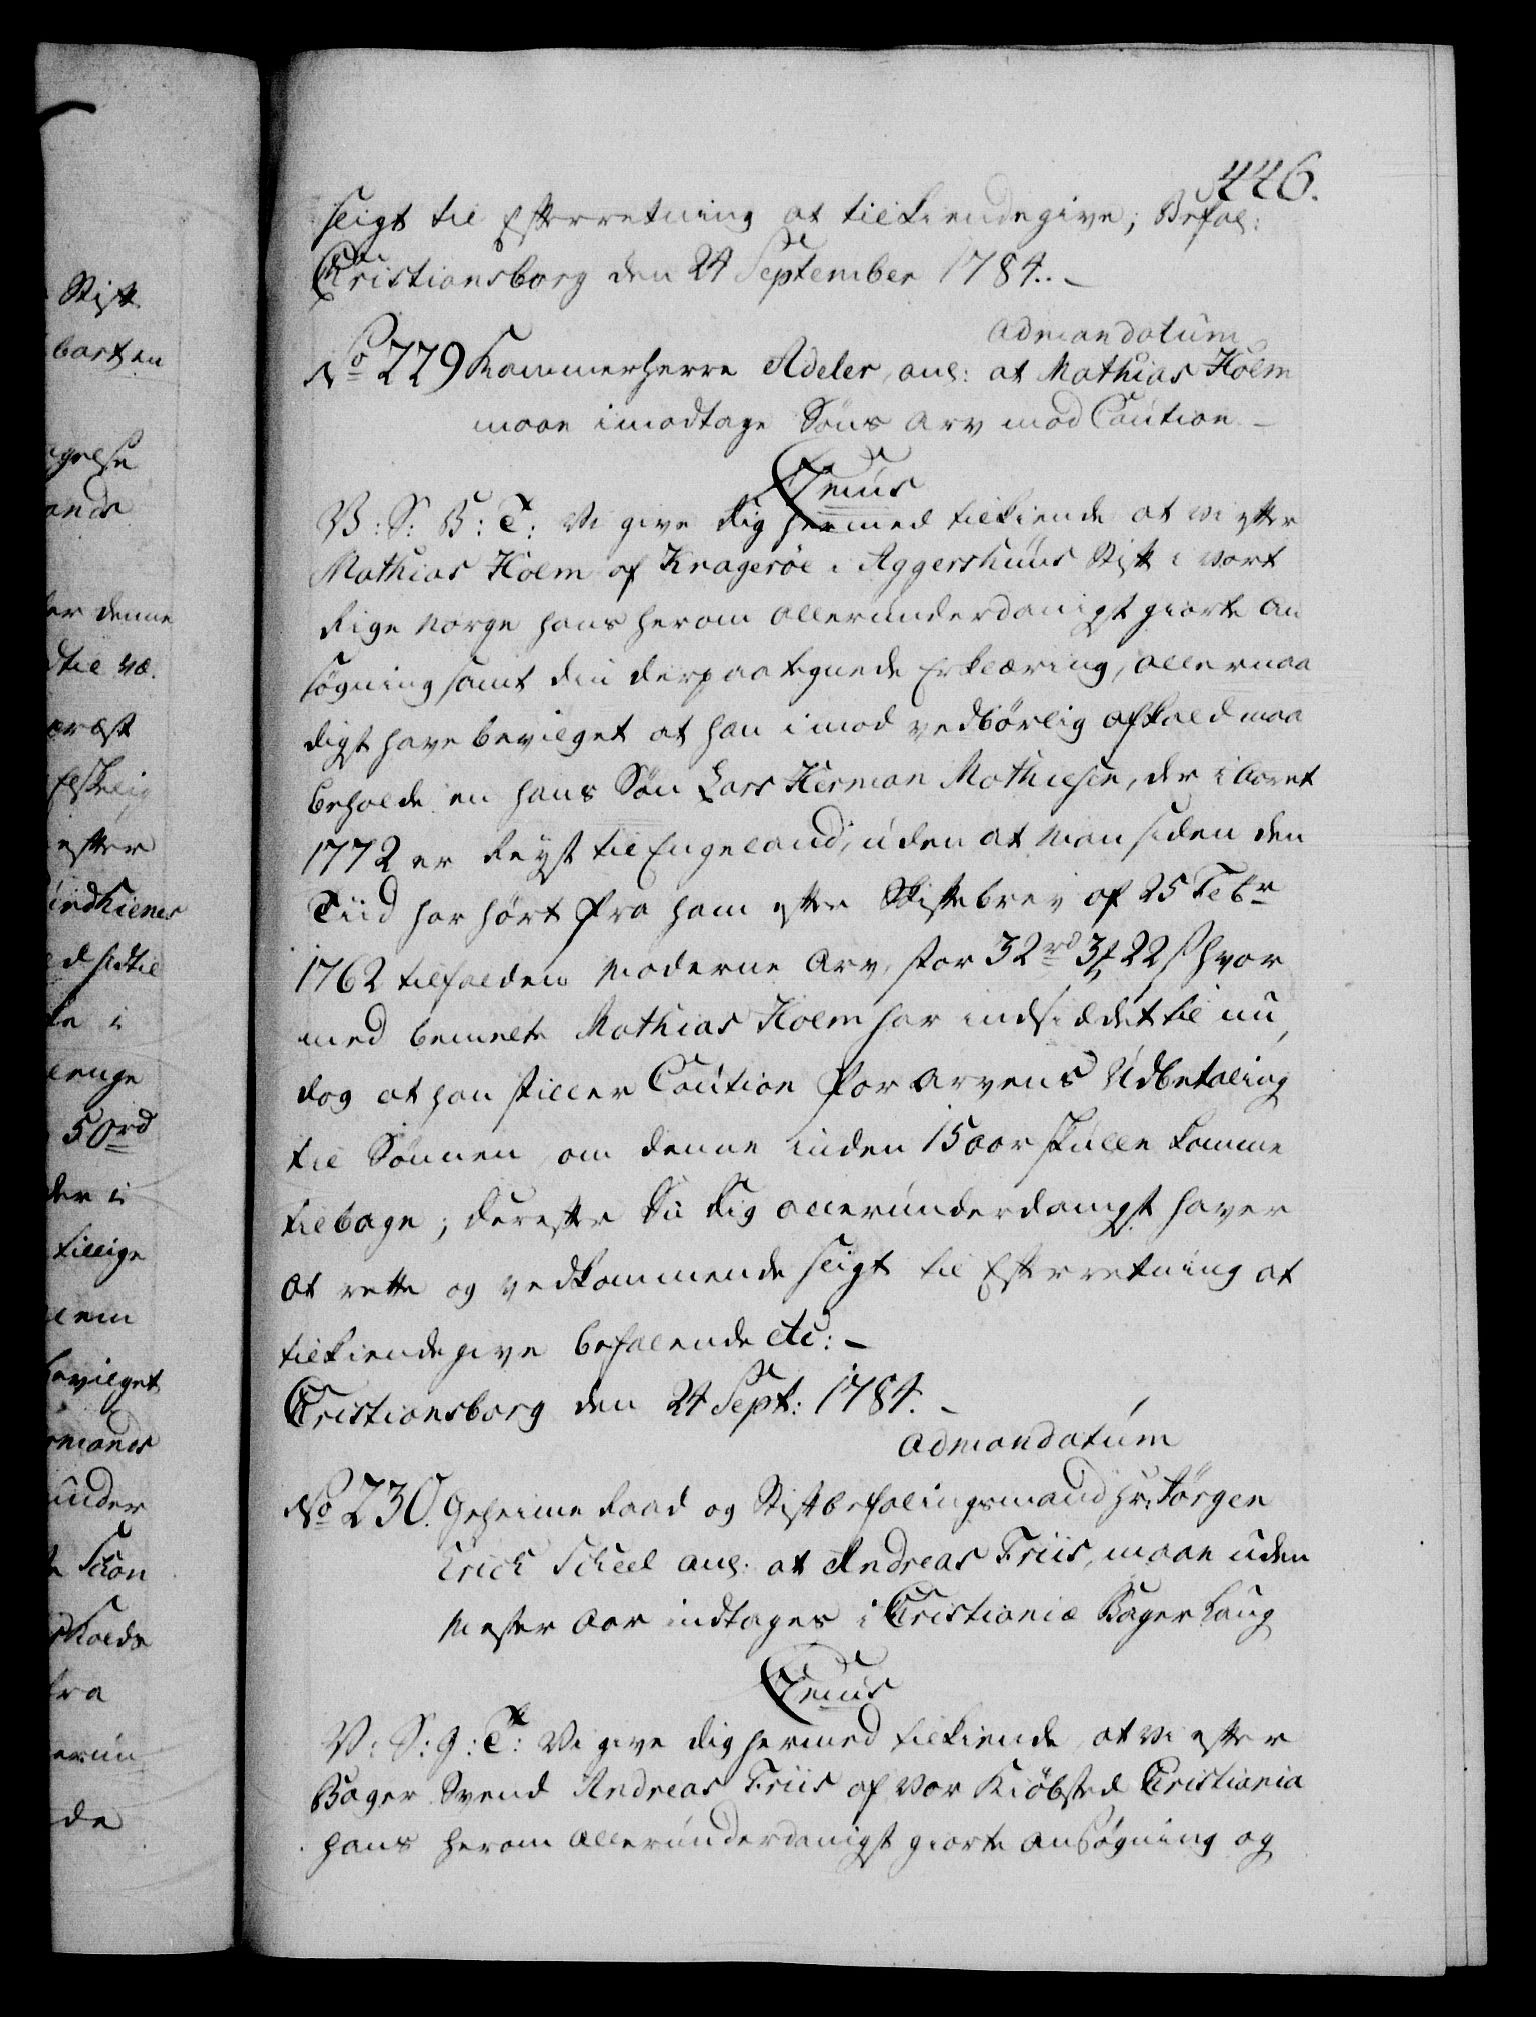 446.
seigt til Efterretning at tilkiendegive; Befal:
Christiansborg den 24 September 1784. –
admandatum
No 229 Kammerherre Adeler, ang: at Mathias Holm
maae imodtage Søns Arv mod Caution –
C 7mus
V: S: B: T: Vi give dig hermed tilkiende at vi efter
Mathias Holm af Kragerøe i Aggershuus Stift i vort
Rige Norge hans herom allerunderdanigst giorte An
søgning samt din derpaa tegnede Erklæring, allernaa
digst have bevilget at han imod vedbørlig afkald maa
beholde en hans Søn Lars Herman Mathiesen, der i Aaret
1772 er Reyst til Engeland, uden at man siden den
Tiid har hørt fra ham efter Skiftebrev af 25 Febr
1762 tilfalden Møderne Arv, stor 32 rd 3 ʒ 22 s hvor
med bemelte Mathias Holm har indsiddet til nu,
dog at han stiller Caution for Arvens Udbetaling
til Sønnen, om denne inden 15 aar skulle komme
tilbage; derefter Du dig allerunderdanigst haver
at rette og vedkommende seigt til Efterretning at
tilkiendegive befalende etc: –
Christiansborg den 24 Sept: 1784. –
admandatum
No 230. Geheime Raad og Stiftbefalingsmand Hr: Jørgen
Erich Scheel ang: at Andreas Friis, maae uden
Mester Aar indtages i Christiania Bager Laug
C 7mus
V: S: G: T: Vi give dig hermed tilkiende, at vi efter
Bager Svend Andreas Friis af vor Kiøbsted Christiania
hans herom allerunderdanigst giorte ansøgning og